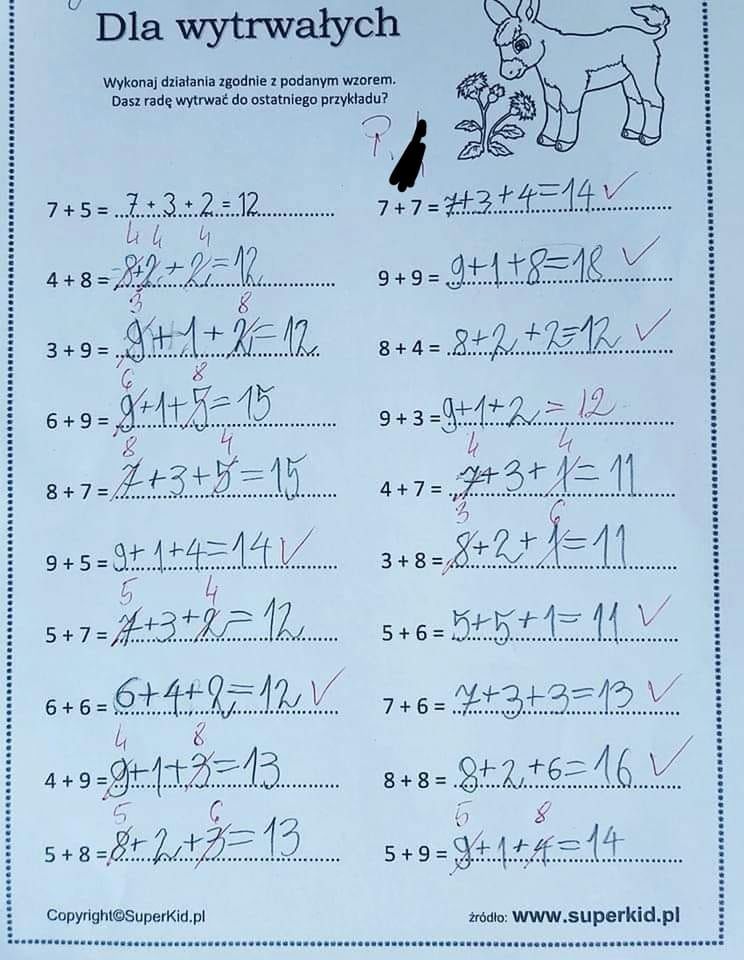 Dla wytrwałych
Wykonaj działania zgodnie z podanym wzorem.
Dasz radę wytrwać do ostatniego przykładu?
7 + 5 = 7 + 3 + 2 = 12
4 4 4
4 + 8 = 8+2 + 2 = 12
3 8
3 + 9 = 9+1+2=12
6 8
6 + 9 = 9+1+5=15
8 4
8 + 7 = 7+3+5=15
9 + 5 = 9+1+4=14 ✓
5 4
5 + 7 = 7+3+2=12
6 + 6 = 6+4+2=12 ✓
4 8
4 + 9 = 9+1+3=13
5 6
5 + 8 = 8+2+3=13
7 + 7 = 7+3+4=14 ✓
9 + 9 = 9+1+8=18 ✓
8 + 4 = 8+2+2=12 ✓
9 + 3 = 9+1+2=12
4 4
4 + 7 = 7+3+1=11
3 6
3 + 8 = 8+2+1=11
5 + 6 = 5+5+1=11 ✓
7 + 6 = 7+3+3=13 ✓
8 + 8 = 8+2+6=16 ✓
5 8
5 + 9 = 9+1+4=14
Copyright©SuperKid.pl
źródło: www.superkid.pl